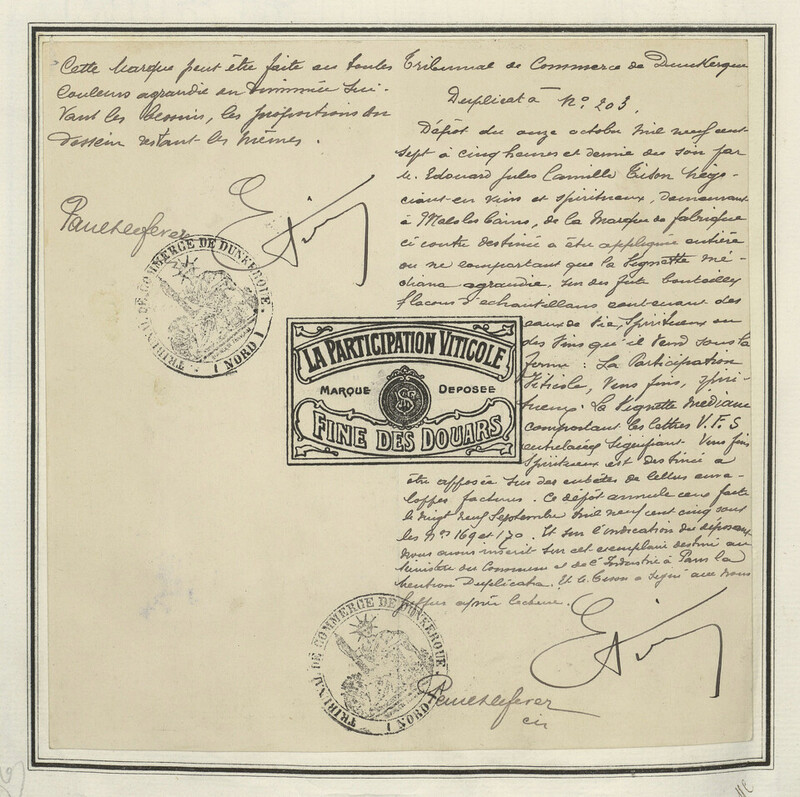 Cette Marque peut être faite en toutes
Couleurs agrandie ou diminuée Sui-
vant les besoins, les proportions du
dessein restant les mêmes.
TRIBUNAL DE COMMERCE DE DUNKERQUE.
( NORD )
Tribunal de Commerce de Dunkerque
Duplicata N° 203.
Dépôt du onze octobre mil neuf cent
sept à cinq heures et demie du soir par
M. Edouard Jules Camille Tison Négo-
ciant en vins et spiritueux, demeurant
à Malo les Bains, de la Marque de fabrique
ci contre destinée à être appliquée entière
ou ne comportant que la vignette mé-
diane agrandie, sur des fûts bouteilles
flacons d'échantillons contenant des
eaux de vie, Spiritueux ou
des vins qu'il vend sous la
forme : La Participation
Viticole, Vins fins, spiri-
tueux. La Vignette médiane
comportant les lettres V. F. S
entrelacées signifiant Vins fins
Spiritueux est destinée à
être apposée sur des entêtes de lettres enve-
loppes factures. Ce dépôt annule ceux faits
le vingt neuf Septembre mil neuf cent cinq sous
les Nos 169 et 170. Et sur l'indication du déposant
nous avons inscrit sur cet exemplaire destiné au
Ministre du Commerce et de l'Industrie à Paris la
mention Duplicata. Et M. Tison a signé avec nous
après lecture.
LA PARTICIPATION VITICOLE
MARQUE DEPOSEE
FINE DES DOUARS
TRIBUNAL DE COMMERCE DE DUNKERQUE
( NORD )